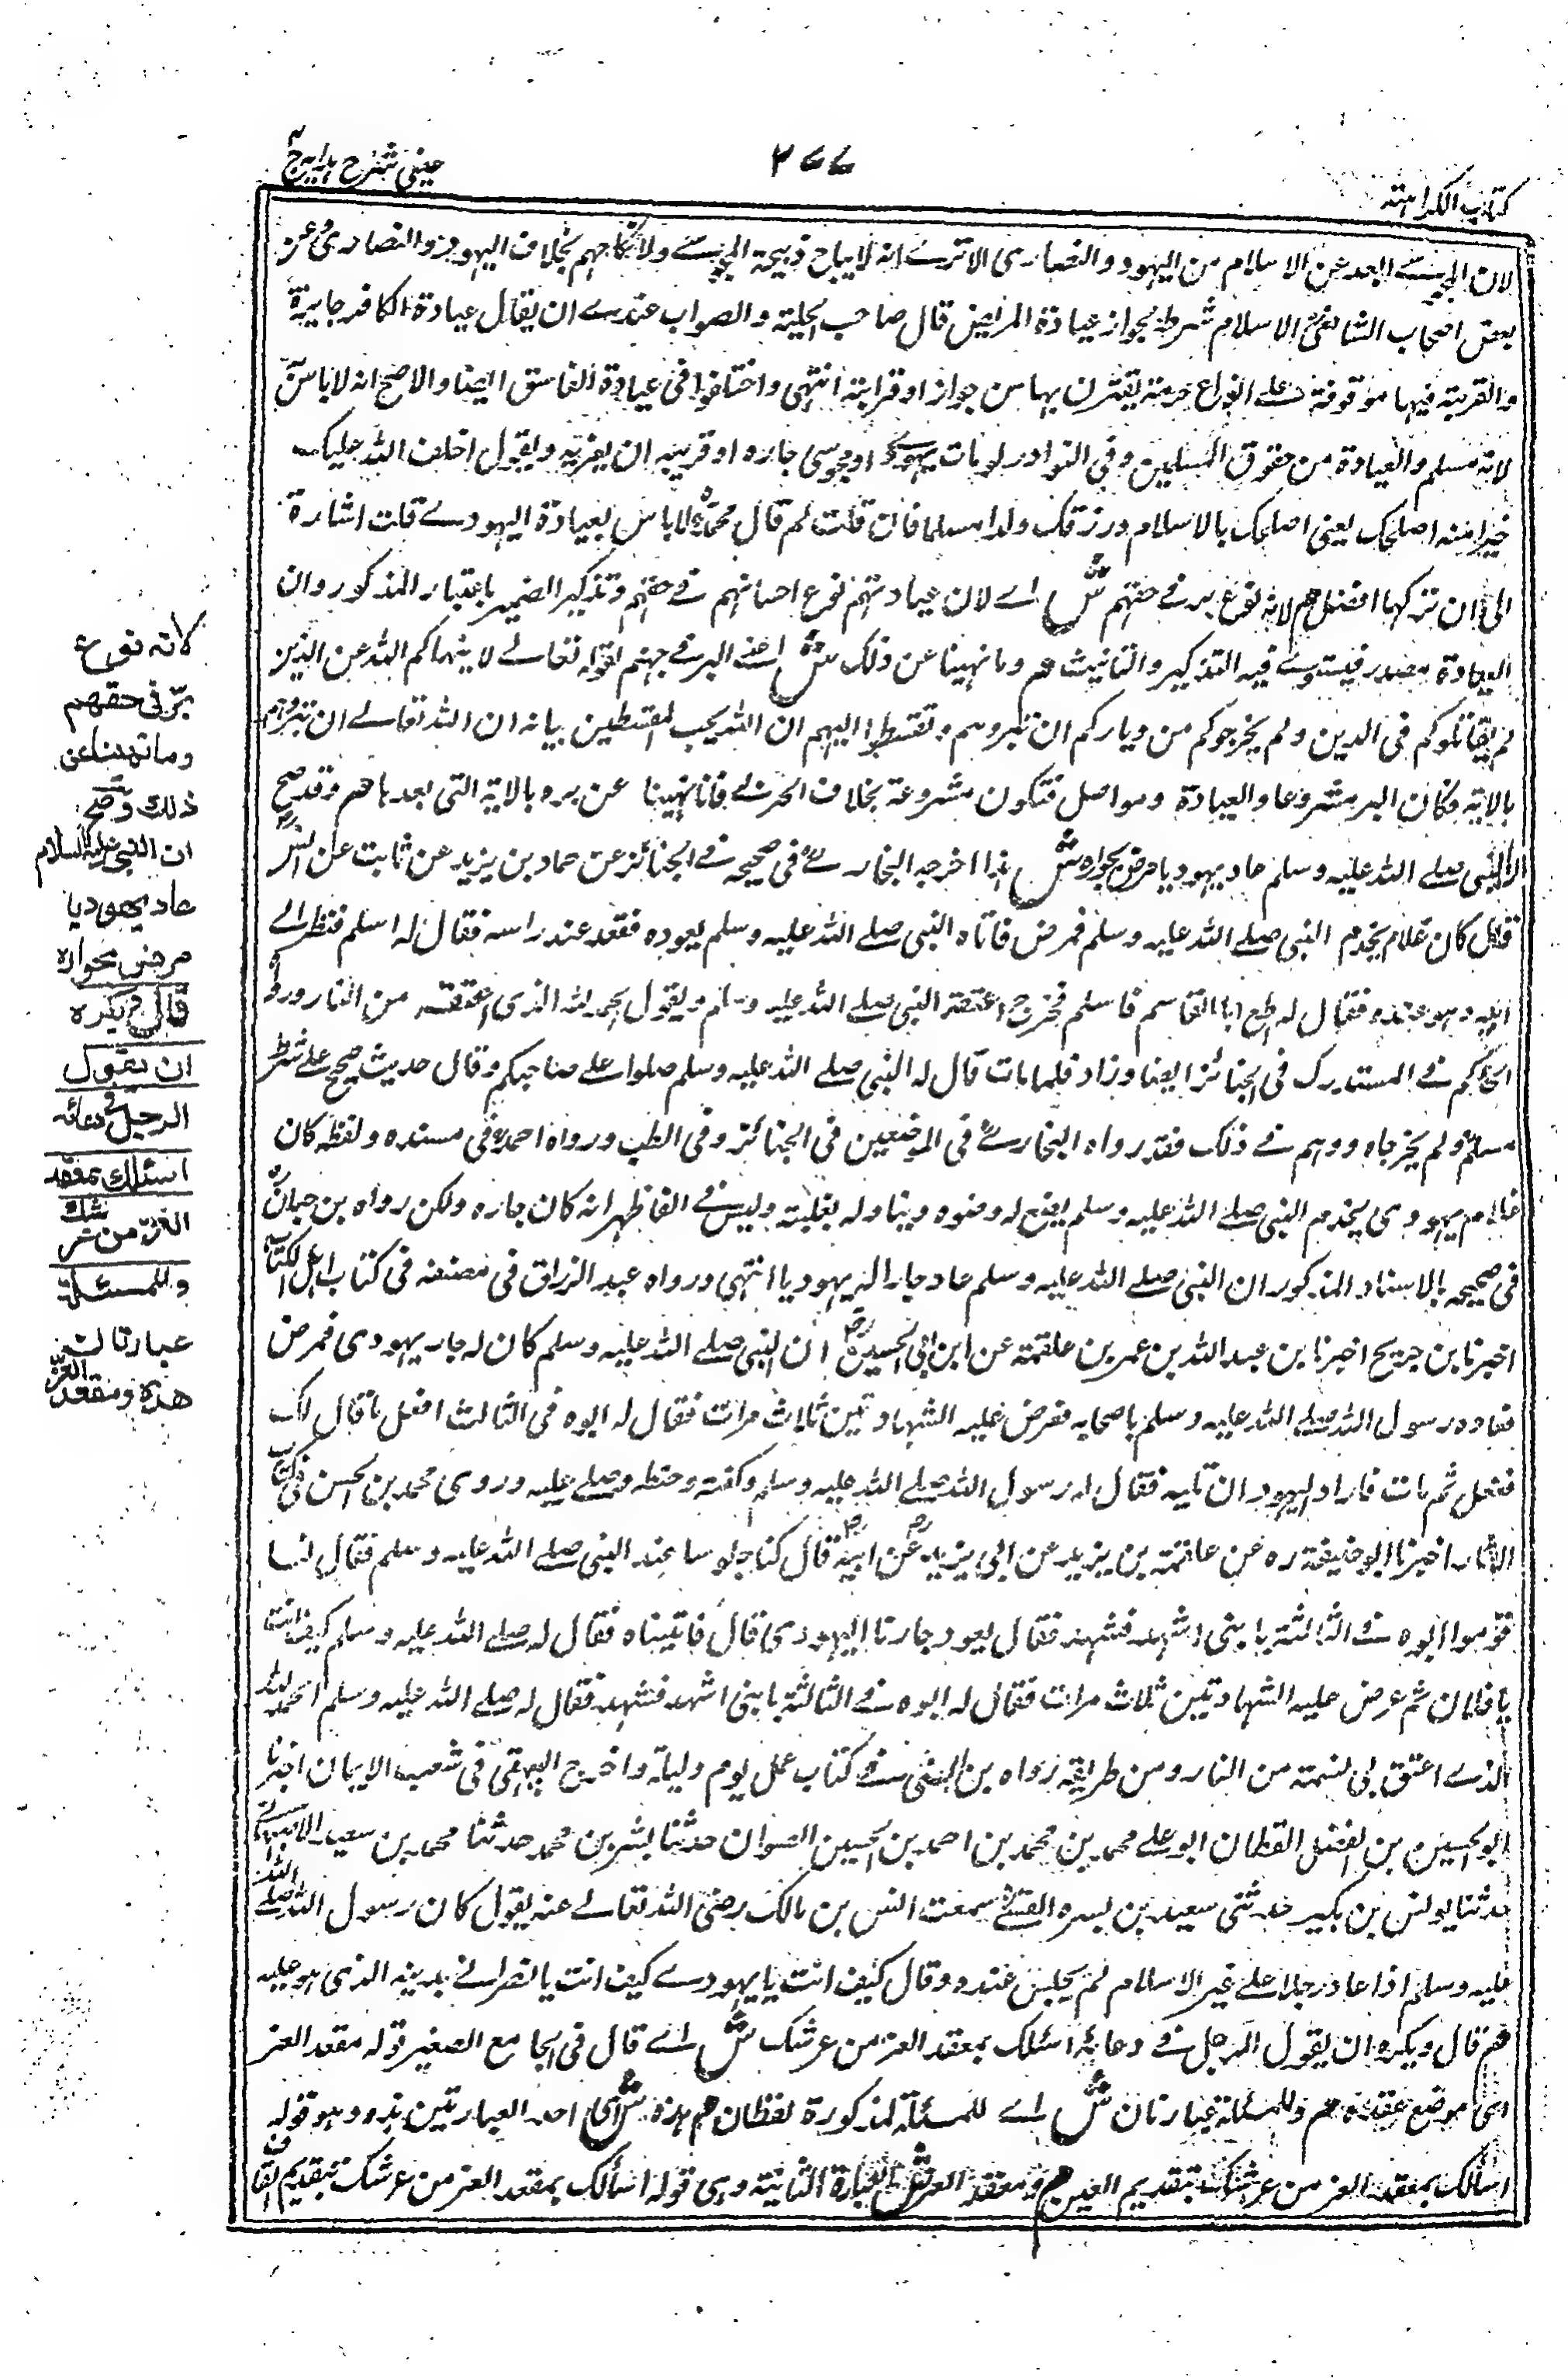 كتاب الكراهته
٢٧٧
عينى شرح هدايه ج ٤
لان المجوسے ابعد عن الاسلام من اليهود والنصارى الا ترے انه لا يباح ذبيحة المجوسے ولا نكاحهم بخلاف اليهود والنصارى وعن
بعض اصحاب الشافعى الاسلام شرط بجواز عيادة المريض قال صاحب الحلية والصواب عندے ان يقال عيادة الكافر جايزة
والقربة فيها موقوفة على انواع حرمة يقترن بها من جوار او قرابة انتهى واختلفوا فى عيادة الفاسق ايضا والاصح انه لا باس به
لانه مسلم والعيادة من حقوق المسلمين وفى النوادر لو مات يهودے او مجوسى جاره او قريبه ان يعزيه ويقول اخلف الله عليك
خيرا منه اصلحك يعنى اصلحك بالاسلام ورزقك ولدا مسلما فان قلت لم قال محمد لا باس بعيادة اليهودے قلت اشارة
الى ان تركها افضل هم لانه نوع بر فے حقهم ش اے لان عيادتهم نوع احسانهم فے حقهم وتذكير الضمير باعتبار المذكور وان
العيادة مصدر فيستوے فيه التذكير والتانيث هم وما نهينا عن ذلك ش اعنے البر فے حقهم لقوله تعالے لا ينهاكم الله عن الذين
لم يقاتلوكم فى الدين ولم يخرجوكم من دياركم ان تبروهم وتقسطوا اليهم ان الله يحب المقسطين بيانه ان الله تعالے ان تبروهم
بالاية فكان البر مشروعا والعيادة ومواصل فتكون مشروعة بخلاف الحربے فانا نهينا عن بره بالاية التى بعدها هم وقد صح
ان النبى صلے الله عليه وسلم عاد يهوديا مرض بجواره ش هذا اخرجه البخارے فى صحيحه فے الجنائز عن حماد بن يزيد عن ثابت عن انس
قال كان غلام يخدم النبى صلے الله عليه وسلم فمرض فاتاه النبى صلے الله عليه وسلم يعوده فقعد عند راسه فقال له اسلم فنظر الے
ابيه وهو عنده فقال له اطع ابا القاسم فاسلم فخرج النبى صلے الله عليه وسلم ويقول الحمد لله الذى اعتقه من النار ورواه
الحاكم فے المستدرك فى الجنائز ايضا وزاد فلما مات قال له النبى صلے الله عليه وسلم صلوا على صاحبكم وقال حديث صحيح على شرط
مسلم ولم يخرجاه ووهم فے ذلك فقد رواه البخارے فى الموضعين فى الجنائز وفى الطب ورواه احمد فى مسنده ولفظه كان
غلام يهودى يخدم النبى صلے الله عليه وسلم يضع له وضوه ويناوله نعليه وليس فے الفاظهم انه كان جاره ولكن رواه بن حبان
فى صحيحه بالاسناد المذكور ان النبى صلے الله عليه وسلم عاد جارا له يهوديا انتهى ورواه عبد الرزاق فى مصنفه فى كتاب اهل الكتاب
اخبرنا بن جريج اخبرنا بن عبد الله بن عمر بن علقمة عن ابن ابى الحسين ان النبى صلے الله عليه وسلم كان له جار يهودى فمرض
فعاده رسول الله صلے الله عليه وسلم باصحابه فعرض عليه الشهادتين ثلاث مرات فقال له ابوه فى الثالث افعل ما قال لك
ففعل ثم مات فاراد اليهود ان تليه فقال له رسول الله صلے الله عليه وسلم وكفنه وحنطه وصلے عليه وروى محمد بن الحسن فى كتاب
الاثار اخبرنا ابو حنيفة ره عن علقمة بن يزيد عن ابى يزيد عن ابيه قال كنا جلوسا عند النبى صلے الله عليه وسلم فقال لنا
قوموا ابوه فے الثالثة يا بنى اشهد فشهد فقال نعود جارنا اليهودى قال فاتيناه فقال له صلے الله عليه وسلم كيف انت
يا فلان ثم عرض عليه الشهادتين ثلاث مرات فقال له ابوه فے الثالثة يا بنى اشهد فشهد فقال له صلے الله عليه وسلم الحمد لله
الذے اعتق بى نسمة من النار ومن طريقه رواه بن السنى فے كتاب عمل يوم وليلة واخرج البيهقى فى شعب الايمان اخبرنا
ابو الحسين بن الفضل القطان ابو علے محمد بن محمد بن احمد بن الحسين الصوان حدثنا بشر بن محمد حدثنا محمد بن سعيد
حدثنا يونس بن بكير حدثنى سعيد بن ميسره القيسے سمعت انس بن مالك رضى الله تعالے عنه يقول كان رسول الله صلے الله
عليه وسلم اذا عاد رجلا على غير الاسلام لم يجلس عنده وقال كيف انت يا يهودے كيف انت يا نصرانے بدينه الذى هو عليه
هم قال ويكره ان يقول الرجل فے دعائه اسئلك بمعقد العز من عرشك ش اے قال فى الجامع الصغير قوله مقعد العز
اى موضع عقده هم وللمسئلة عبارتان ش اے للمسئلة المذكورة لفظان هم هذه ش اى احد العبارتين هذه وهو قوله
اسألك بمعقد العز من عرشك بتقديم العين هم ومقعد العز ش العبارة الثانية وهى قوله اسألك بمقعد العز من عرشك بتقديم القاف
لانه نوع
برّ فى حقهم
وما نهينا عن
ذلك وصح
ان النبى عليه السلام
عاد يهوديا
مرض بجواره
قال ويكره
ان يقول
الرجل فى دعائه
اسئلك بمعقد
العزّ من عرشك
وللمسئلة
عبارتان
هذه ومقعد العزّ